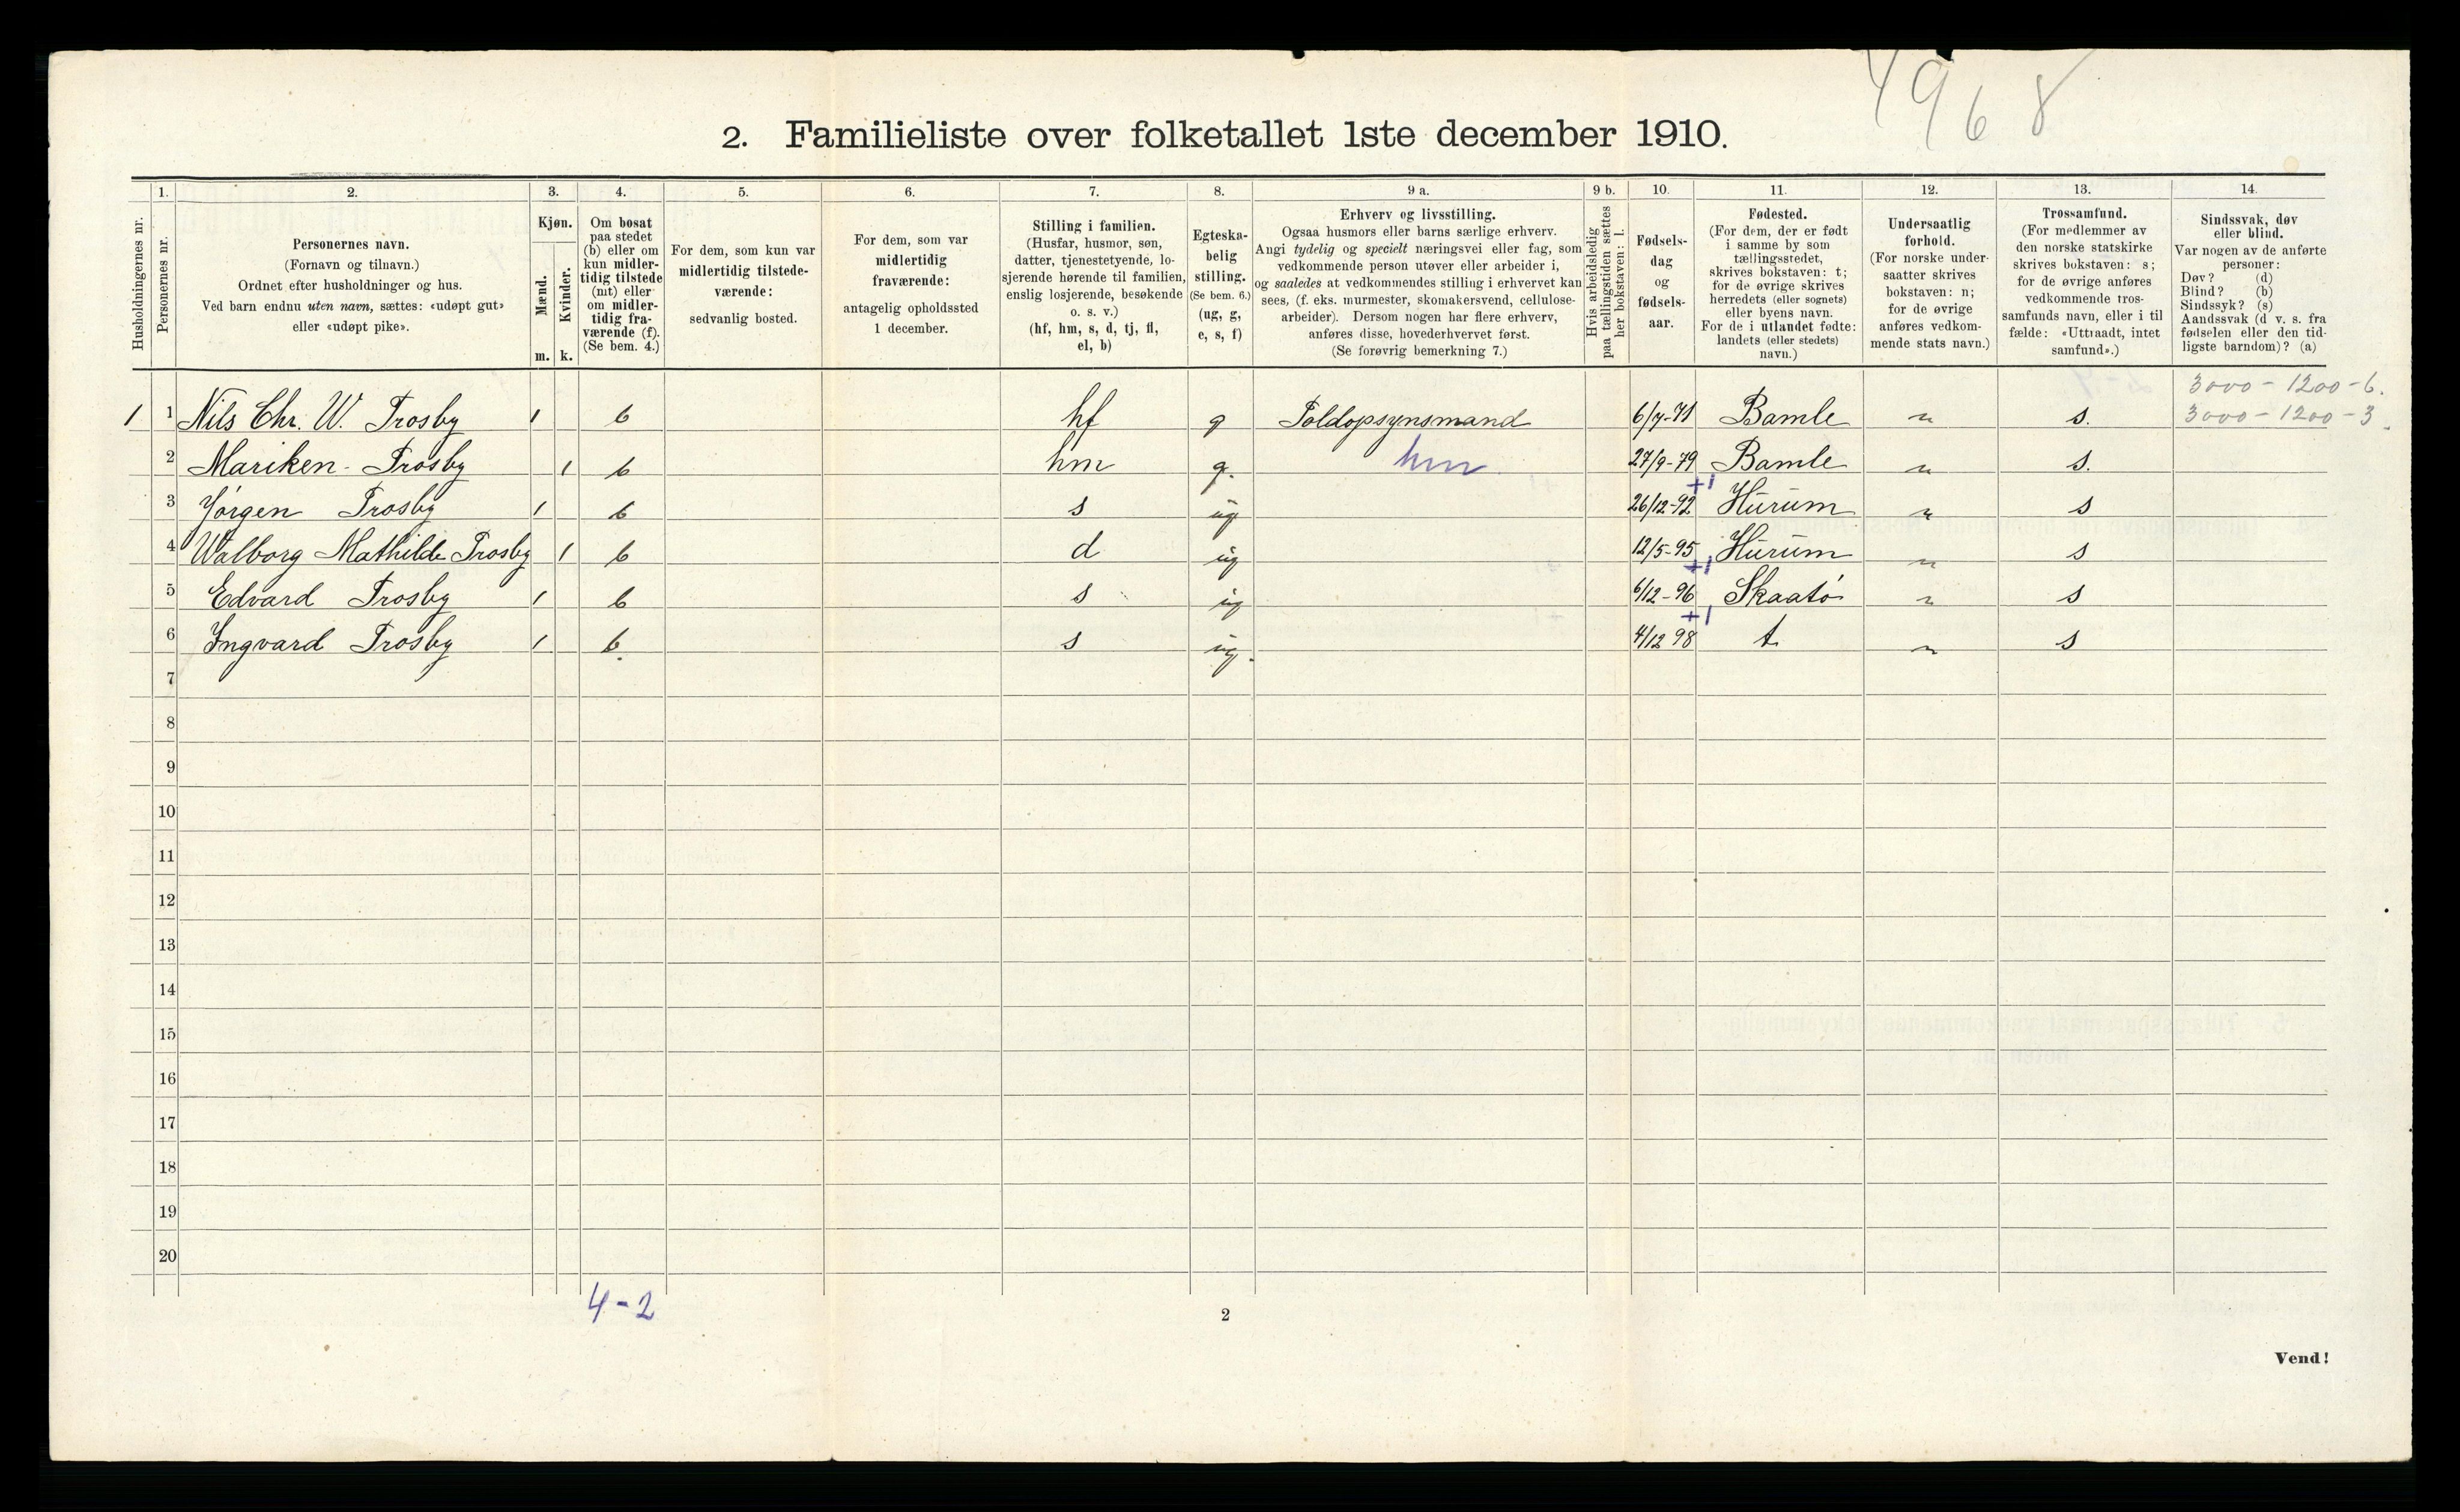 4968
2. Familieliste over folketallet 1ste december 1910.
1. 2. 3. 4. 5. 6. 7. 8. 9 a. 9 b. 10. 11. 12. 13. 14.
Husholdningernes nr.
Personernes nr.
Personernes navn.
(Fornavn og tilnavn.)
Ordnet efter husholdninger og hus.
Ved barn endnu uten navn, sættes: «udøpt gut»
eller «udøpt pike».
Kjøn.
Mænd.
Kvinder.
m. k.
Om bosat
paa stedet
(b) eller om
kun midler-
tidig tilstede
(mt) eller
om midler-
tidig fra-
værende (f).
(Se bem. 4.)
For dem, som kun var
midlertidig tilstede-
værende:
sedvanlig bosted.
For dem, som var
midlertidig
fraværende:
antagelig opholdssted
1 december.
Stilling i familien.
(Husfar, husmor, søn,
datter, tjenestetyende, lo-
sjerende hørende til familien,
enslig losjerende, besøkende
o. s. v.)
(hf, hm, s, d, tj, fl,
el, b)
Egteska-
belig
stilling.
(Se bem. 6.)
(ug, g,
e, s, f)
Erhverv og livsstilling.
Ogsaa husmors eller barns særlige erhverv.
Angi tydelig og specielt næringsvei eller fag, som
vedkommende person utøver eller arbeider i,
og saaledes at vedkommendes stilling i erhvervet kan
sees, (f. eks. murmester, skomakersvend, cellulose-
arbeider). Dersom nogen har flere erhverv,
anføres disse, hovederhvervet først.
(Se forøvrig bemerkning 7.)
Hvis arbeidsledig
paa tællingstiden sættes
her bokstaven: l.
Fødsels-
dag
og
fødsels-
aar.
Fødested.
(For dem, der er født
i samme by som
tællingsstedet,
skrives bokstaven: t;
for de øvrige skrives
herredets (eller sognets)
eller byens navn.
For de i utlandet fødte:
landets (eller stedets)
navn.)
Undersaatlig
forhold.
(For norske under-
saatter skrives
bokstaven: n;
for de øvrige
anføres vedkom-
mende stats navn.)
Trossamfund.
(For medlemmer av
den norske statskirke
skrives bokstaven: s;
for de øvrige anføres
vedkommende tros-
samfunds navn, eller i til
fælde: «Uttraadt, intet
samfund».)
Sindssvak, døv
eller blind.
Var nogen av de anførte
personer:
Døv? (d)
Blind? (b)
Sindssyk? (s)
Aandssvak (d v. s. fra
fødselen eller den tid-
ligste barndom)? (a)
3000 - 1200 - 6.
1 1 Nils Chr. W. Trosby 1 b hf g Toldopsynsmand 6/7-71 Bamle n s. 3000 - 1200 - 3.
2 Mariken Trosby 1 b hm g. hm 27/9-79 Bamle n s.
+1
3 Jørgen Trosby 1 b s ug 26/12-92 Hurum n s
4 Walborg Mathilde Trosby 1 b d ug 12/5-95 Hurum n s
+1
5 Edvard Trosby 1 b s ug 6/12-96 Skaatø n s
+1
6 Ingvard Trosby 1 b. s ug. 4/12 98 t n s
7
8
9
10
11
12
13
14
15
16
17
18
19
20
4-2
2
Vend!